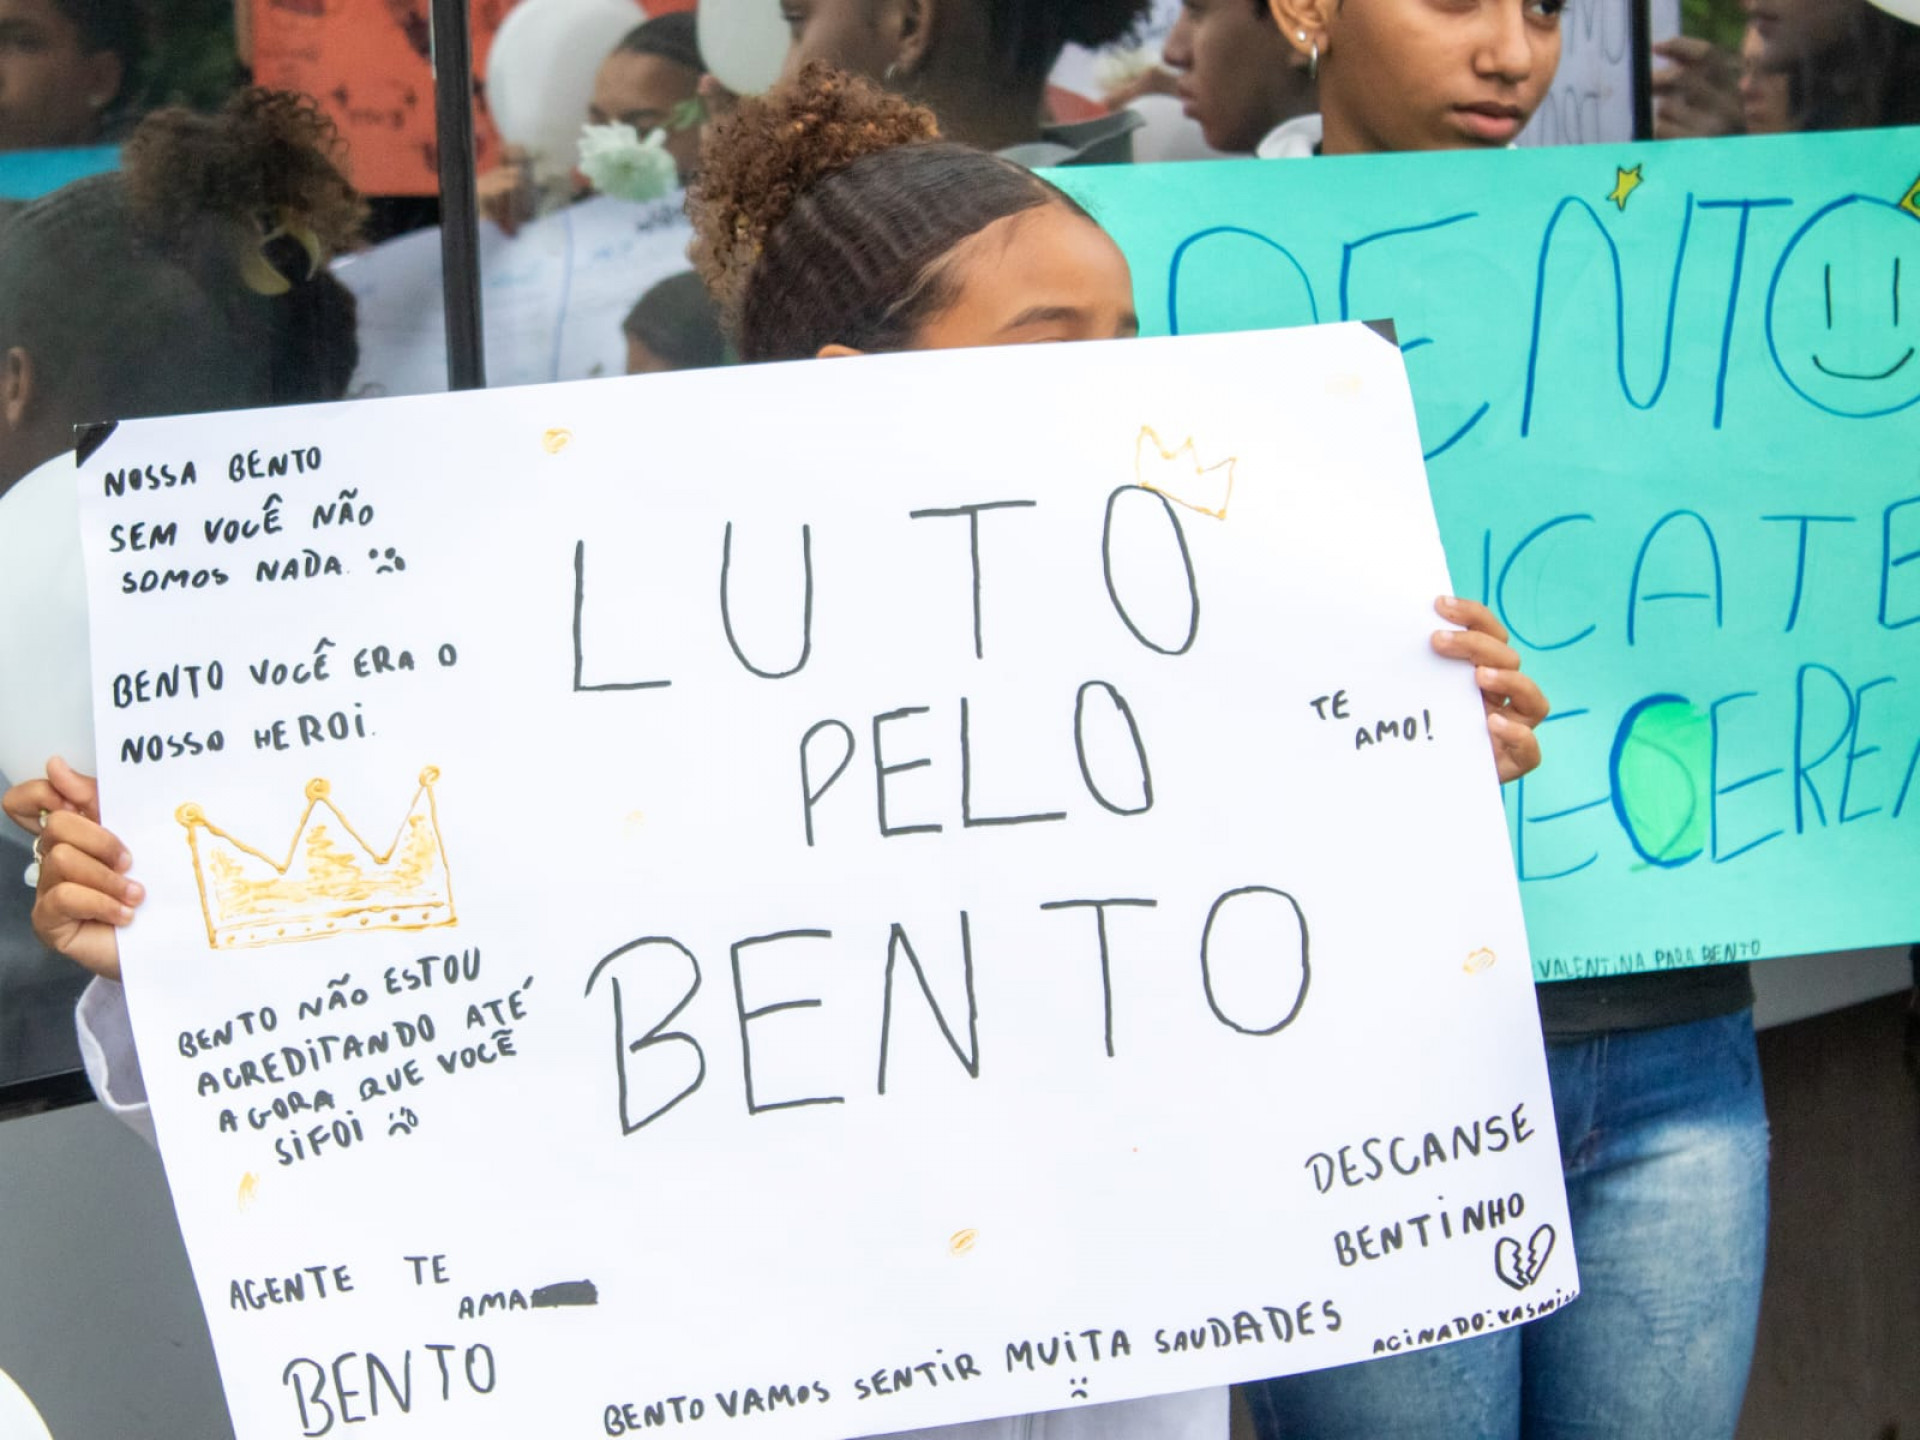 NOSSA BENTO
SEM VOCÊ NÃO
SOMOS NADA.
BENTO VOCÊ ERA O
NOSSO HEROI.
BENTO NÃO ESTOU
ACREDITANDO ATÉ
AGORA QUE VOCÊ
SIFOI
AGENTE TE
AMA
BENTO
LUTO
PELO
BENTO
TE
AMO!
DESCANSE
BENTINHO
BENTO VAMOS SENTIR MUITA SAUDADES
ACINADO: YASMIN
BENTO
VALENTINA PARA BENTO